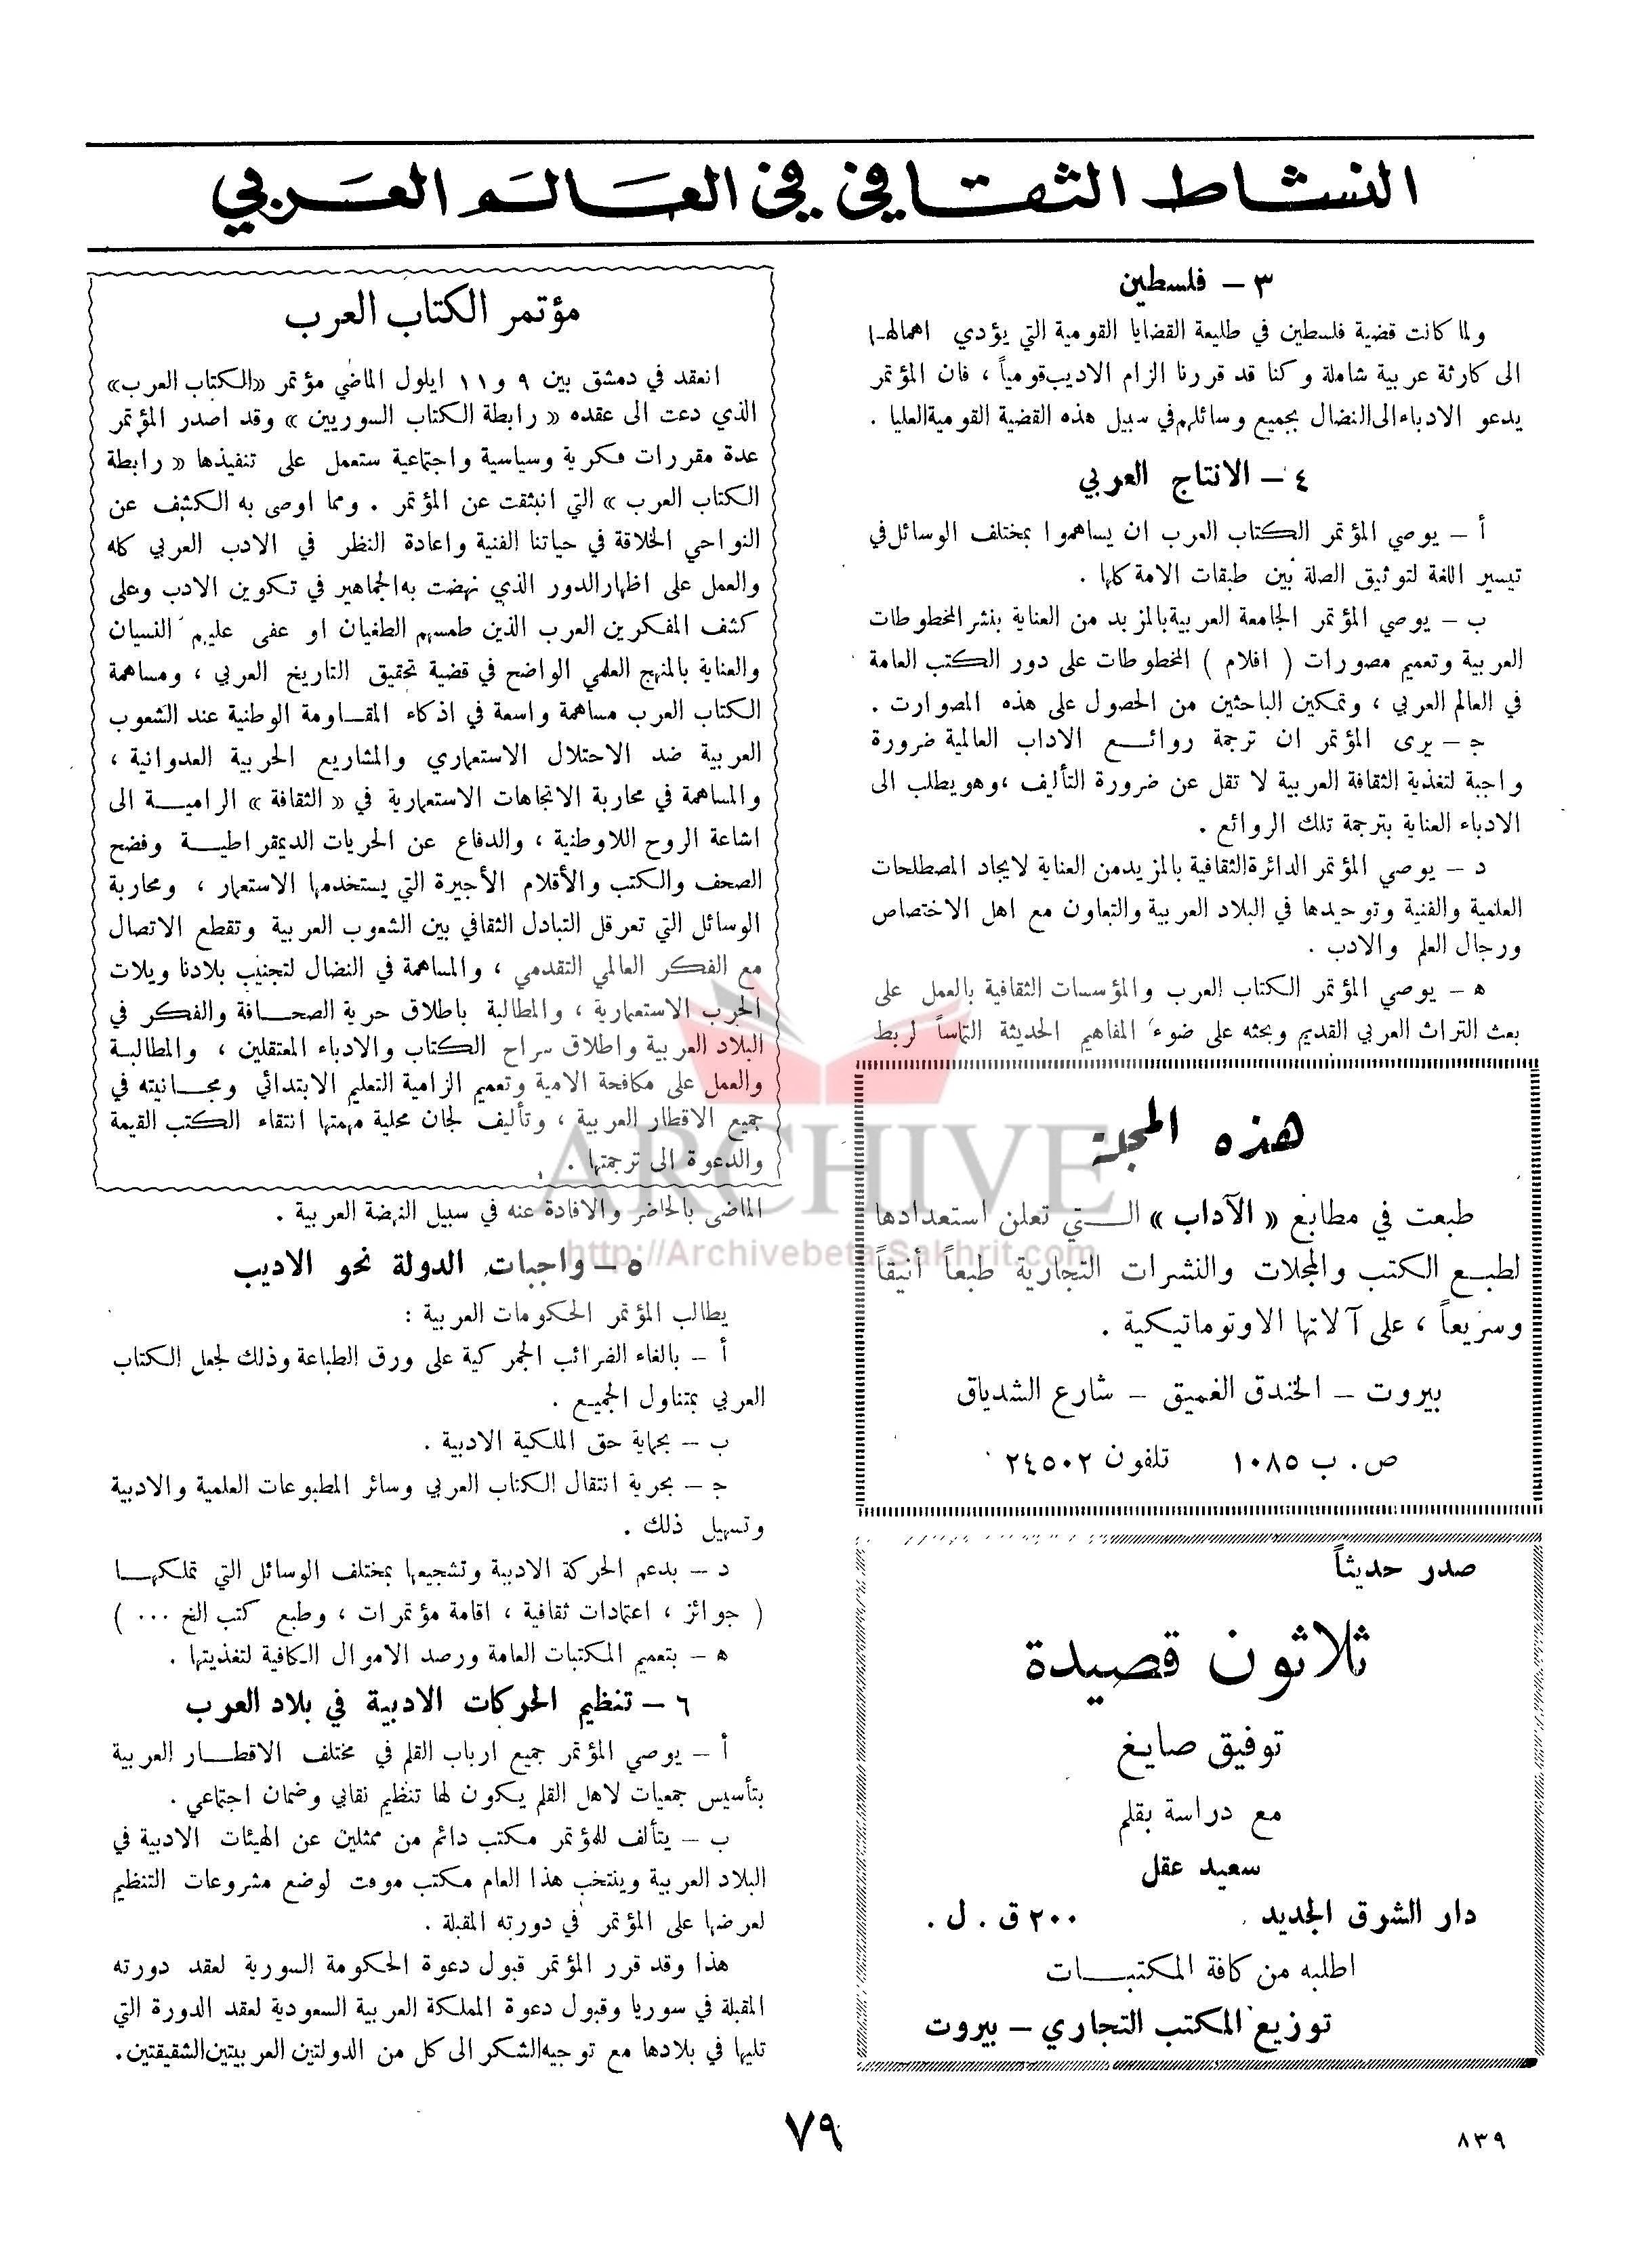 النشاط الثقافي في العالم العربي
٣ - فلسطين
ولما كانت قضية فلسطين في طليعة القضايا القومية التي يؤدي اهمالها
الى كارثة عربية شاملة وكنا قد قررنا الزام الاديب قومياً ، فان المؤتمر
يدعو الادباء الى النضال بجميع وسائلهم في سبيل هذه القضية القومية العليا .
٤ - الانتاج العربي
أ - يوصي المؤتمر الكتاب العرب ان يساهموا بمختلف الوسائل في
تيسير اللغة لتوثيق الصلة بين طبقات الامة كلها .
ب - يوصي المؤتمر الجامعة العربية بالمزيد من العناية بنشر المخطوطات
العربية وتعميم مصورات ( افلام ) المخطوطات على دور الكتب العامة
في العالم العربي ، وتمكين الباحثين من الحصول على هذه المصوارت .
ج - يرى المؤتمر ان ترجمة روائع الاداب العالمية ضرورة
واجبة لتغذية الثقافة العربية لا تقل عن ضرورة التأليف ، وهو يطلب الى
الادباء العناية بترجمة تلك الروائع .
د - يوصي المؤتمر الدائرة الثقافية بالمزيد من العناية لايجاد المصطلحات
العلمية والفنية وتوحيدها في البلاد العربية والتعاون مع اهل الاختصاص
ورجال العلم والادب .
ه - يوصي المؤتمر الكتاب العرب والمؤسسات الثقافية بالعمل على
بعث التراث العربي القديم وبحثه على ضوء المفاهيم الحديثة التماساً لربط
هذه المجلة
طبعت في مطابع « الآداب » التي تعلن استعدادها
لطبع الكتب والمجلات والنشرات التجارية طبعاً أنيقاً
وسريعاً ، على آلاتها الاوتوماتيكية .
بيروت - الخندق الغميق - شارع الشدياق
ص . ب ١٠٨٥ تلفون ٢٤٥٠٢
صدر حديثاً
ثلاثون قصيدة
توفيق صايغ
مع دراسة بقلم
سعيد عقل
دار الشرق الجديد ٢٠٠ ق . ل .
اطلبه من كافة المكتبات
توزيع المكتب التجاري - بيروت
مؤتمر الكتاب العرب
انعقد في دمشق بين ٩ و ١١ ايلول الماضي مؤتمر «الكتاب العرب»
الذي دعت الى عقده « رابطة الكتاب السوريين » وقد اصدر المؤتمر
عدة مقررات فكرية وسياسية واجتماعية ستعمل على تنفيذها « رابطة
الكتاب العرب » التي انبثقت عن المؤتمر . ومما اوصى به الكشف عن
النواحي الخلاقة في حياتنا الفنية واعادة النظر في الادب العربي كله
والعمل على اظهار الدور الذي نهضت به الجماهير في تكوين الادب وعلى
كشف المفكرين العرب الذين طمسهم الطغيان او عفى عليهم النسيان
والعناية بالمنهج العلمي الواضح في قضية تحقيق التاريخ العربي ، ومساهمة
الكتاب العرب مساهمة واسعة في اذكاء المقاومة الوطنية عند الشعوب
العربية ضد الاحتلال الاستعماري والمشاريع الحربية العدوانية ،
والمساهمة في محاربة الاتجاهات الاستعمارية في « الثقافة » الرامية الى
اشاعة الروح اللاوطنية ، والدفاع عن الحريات الديمقراطية وفضح
الصحف والكتب والأقلام الأجيرة التي يستخدمها الاستعمار ، ومحاربة
الوسائل التي تعرقل التبادل الثقافي بين الشعوب العربية وتقطع الاتصال
مع الفكر العالمي التقدمي ، والمساهمة في النضال لتجنيب بلادنا ويلات
الحرب الاستعمارية ، والمطالبة باطلاق حرية الصحافة والفكر في
البلاد العربية واطلاق سراح الكتاب والادباء المعتقلين ، والمطالبة
والعمل على مكافحة الامية وتعميم الزامية التعليم الابتدائي ومجانيته في
جميع الاقطار العربية ، وتأليف لجان محلية مهمتها انتقاء الكتب القيمة
والدعوة الى ترجمتها .
الماضي بالحاضر والافادة عنه في سبيل النهضة العربية .
٥ - واجبات الدولة نحو الاديب
يطالب المؤتمر الحكومات العربية :
أ - بالغاء الضرائب الجمركية على ورق الطباعة وذلك لجعل الكتاب
العربي بمتناول الجميع .
ب - بحماية حق الملكية الادبية .
ج - بحرية انتقال الكتاب العربي وسائر المطبوعات العلمية والادبية
وتسهيل ذلك .
د - بدعم الحركة الادبية وتشجيعها بمختلف الوسائل التي تملكها
( جوائز ، اعتمادات ثقافية ، اقامة مؤتمرات ، وطبع كتب الخ ... )
ه - بتعميم المكتبات العامة ورصد الاموال الكافية لتغذيتها .
٦ - تنظيم الحركات الادبية في بلاد العرب
أ - يوصي المؤتمر جميع ارباب القلم في مختلف الاقطار العربية
بتأسيس جمعيات لاهل القلم يكون لها تنظيم نقابي وضمان اجتماعي .
ب - يتألف للمؤتمر مكتب دائم من ممثلين عن الهيئات الادبية في
البلاد العربية وينتخب هذا العام مكتب موقت لوضع مشروعات التنظيم
لعرضها على المؤتمر في دورته المقبلة .
هذا وقد قرر المؤتمر قبول دعوة الحكومة السورية لعقد دورته
المقبلة في سوريا وقبول دعوة المملكة العربية السعودية لعقد الدورة التي
تليها في بلادها مع توجيه الشكر الى كل من الدولتين العربيتين الشقيقتين.
ARCHIVE
http://Archivebeta.Sakhrit.com
٧٩
٨٣٩